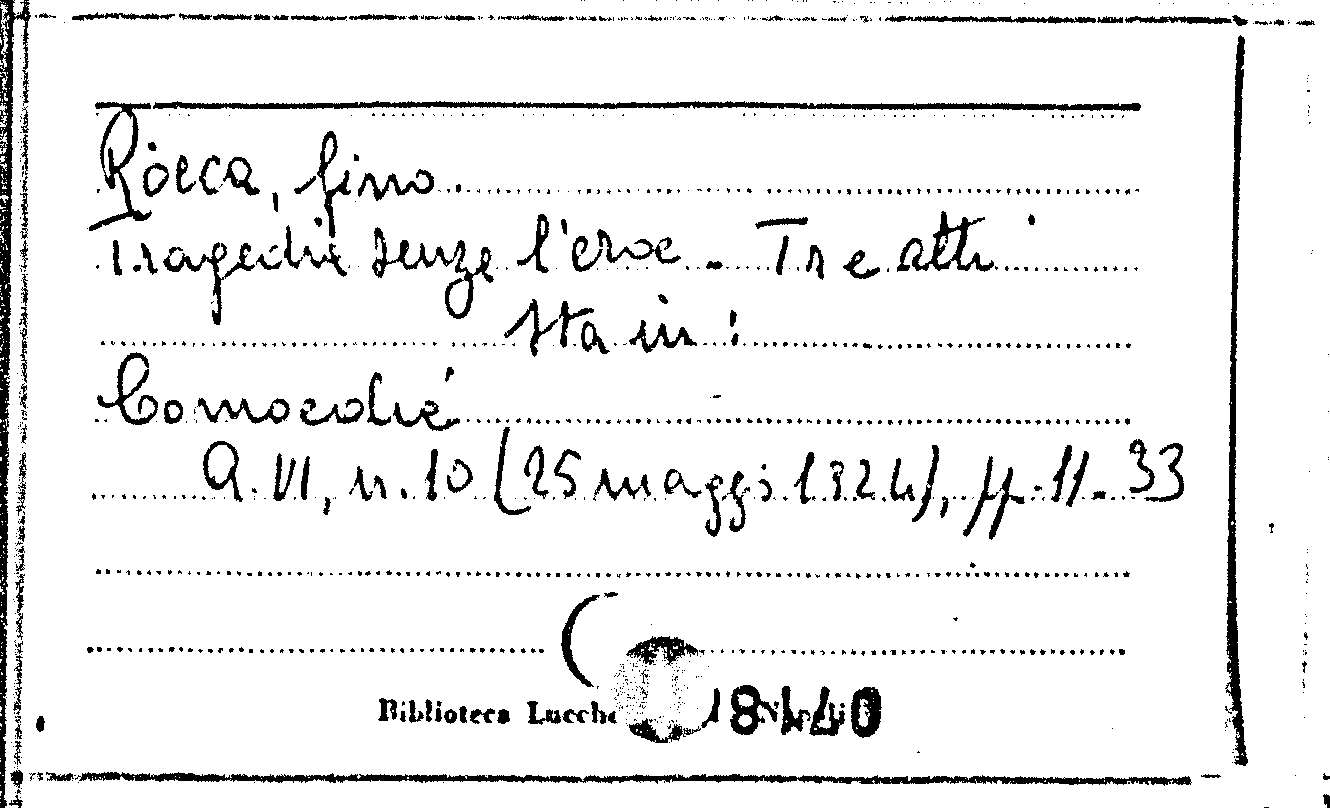 Rocca, Gino.
Tragedia senza l'eroe. Tre atti
Sta in:
Comoedia
A. VI, n. 10 (25 maggio 1924), pp. 11-33
Biblioteca Lucche